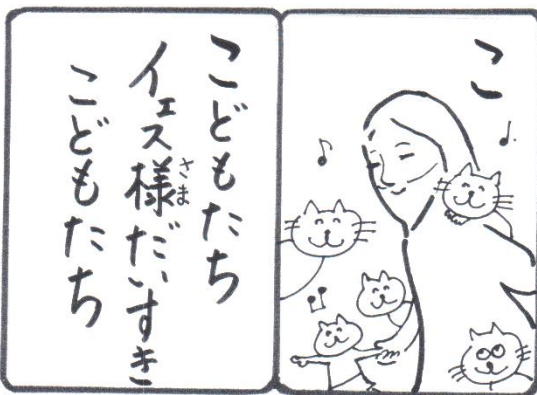 こ
こどもたち
イエス様だいすき
さま
こどもたち